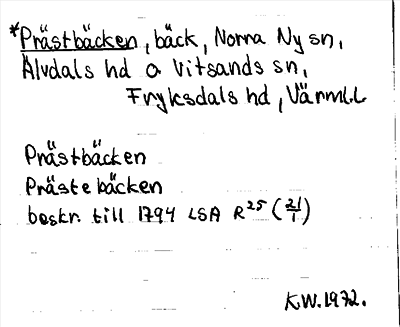 *Prästbäcken, bäck, Norra Ny sn,
Älvdals hd o Vitsands sn,
Fryksdals hd, Värml.l.
Prästbäcken
Prästebäcken
beskr. till 1794 LSA R25 (21/1)
K.W. 1972.